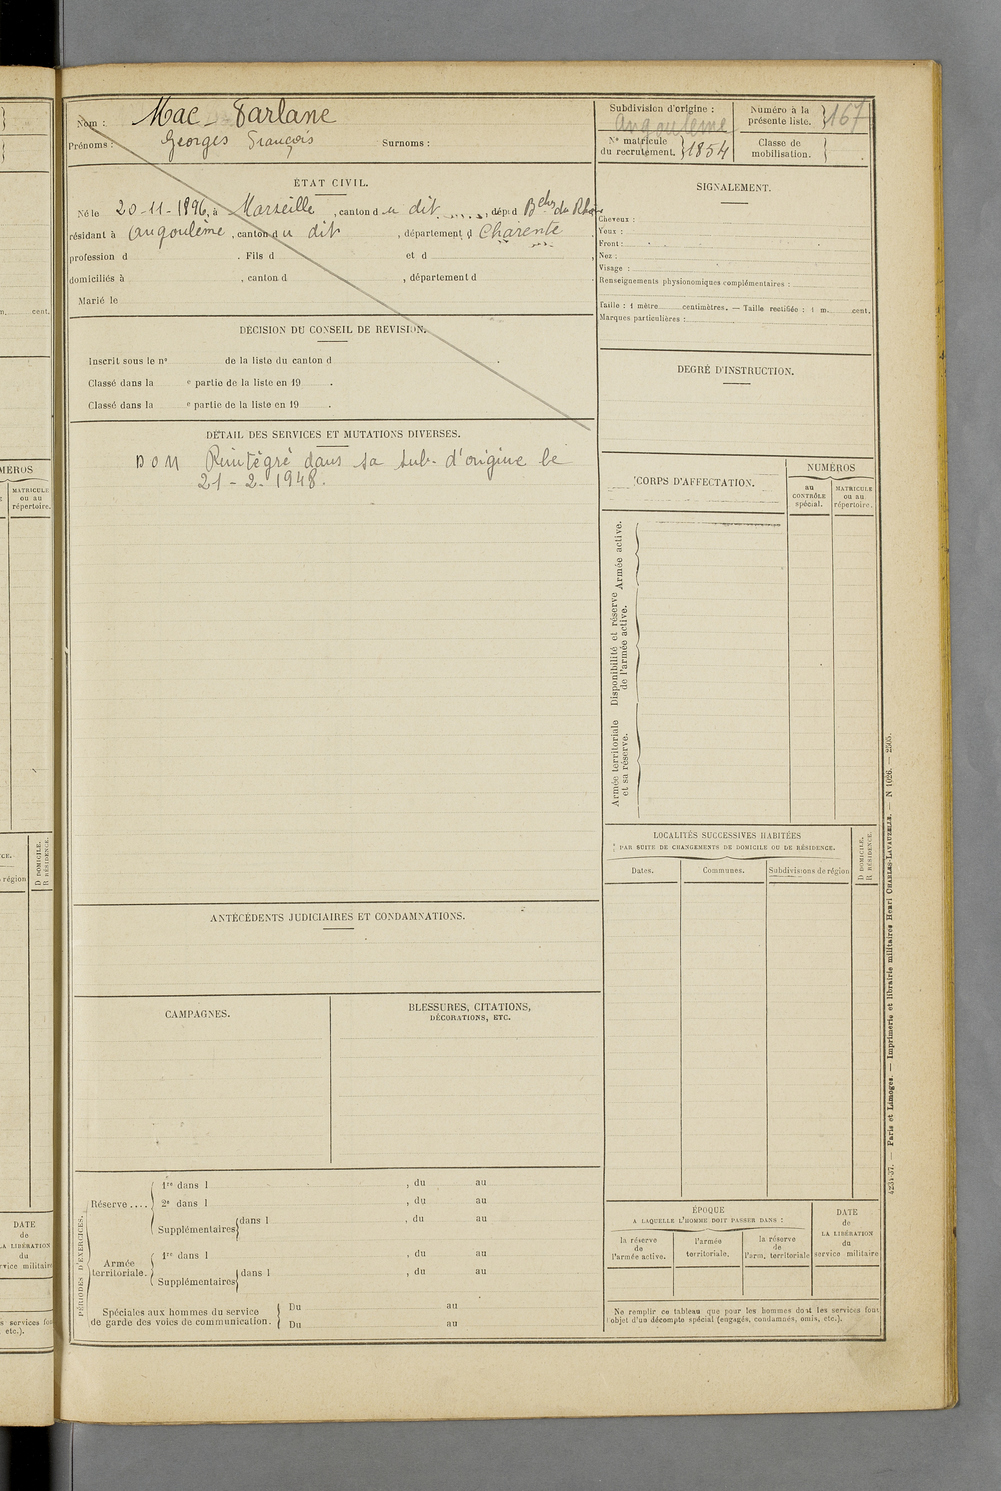 Nom : Mac-Farlane
Prénoms : Georges François Surnoms :
ÉTAT CIVIL.
Né le 20-11-1896, à Marseille, canton du dit, dép. d Bches du Rhône
résidant à Angoulême, canton du dit, département d Charente
profession d . Fils d et d
domiciliés à , canton d , département d
Marié le
DÉCISION DU CONSEIL DE REVISION.
Inscrit sous le n° de la liste du canton d .
Classé dans la e partie de la liste en 19 .
Classé dans la e partie de la liste en 19 .
DÉTAIL DES SERVICES ET MUTATIONS DIVERSES.
DOM Réintégré dans sa sub. d'origine le
21-2-1948.
ANTÉCÉDENTS JUDICIAIRES ET CONDAMNATIONS.
CAMPAGNES.
BLESSURES, CITATIONS,
DÉCORATIONS, ETC.
PÉRIODES D'EXERCICES.
Réserve ....
1re dans l , du au
2e dans l , du au
Supplémentaires dans l , du au
Armée
territoriale.
1re dans l , du au
Supplémentaires dans l , du au
Spéciales aux hommes du service
de garde des voies de communication.
Du au
Du au
Subdivision d'origine :
Angoulême
Numéro à la
présente liste.
167
N° matricule
du recrutement.
1854
Classe de
mobilisation.
SIGNALEMENT.
Cheveux :
Yeux :
Front :
Nez :
Visage :
Renseignements physionomiques complémentaires :
Taille : 1 mètre centimètres. — Taille rectifiée : 1 m. cent.
Marques particulières :
DEGRÉ D'INSTRUCTION.
CORPS D'AFFECTATION.
NUMÉROS
au
CONTRÔLE
spécial.
MATRICULE
ou au
répertoire.
Armée active.
Disponibilité et réserve
de l'armée active.
Armée territoriale
et sa réserve.
LOCALITÉS SUCCESSIVES HABITÉES
PAR SUITE DE CHANGEMENTS DE DOMICILE OU DE RÉSIDENCE.
D DOMICILE.
R RÉSIDENCE.
Dates.
Communes.
Subdivisions de région
ÉPOQUE
A LAQUELLE L'HOMME DOIT PASSER DANS :
la réserve
de
l'armée active.
l'armée
territoriale.
la réserve
de
l'arm. territoriale
DATE
de
LA LIBÉRATION
du
service militaire
Ne remplir ce tableau que pour les hommes dont les services font
l'objet d'un décompte spécial (engagés, condamnés, omis, etc.).
Paris et Limoges. — Imprimerie et librairie militaires Henri CHARLES-LAVAUZELLE. — N 1026. —
m. cent.
MÉROS
MATRICULE
ou au
répertoire.
D DOMICILE.
R RÉSIDENCE.
région
DATE
de
LA LIBÉRATION
du
service militaire
s services font
etc.).